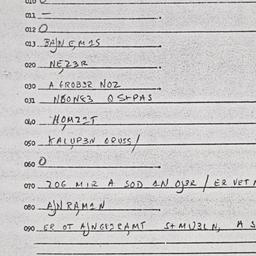 010
011 –
012 O
013 BAJNEM1S
020 NEZ3R
030 A GROB3R NOZ
031 NBONG3 O S+PAS
040 HOMZIT
050 KALUP3N ORUSS/
060 O
070 ZOG MIR A SOD 1N OJ3R / ER VET
080 AJNRAM1N
090 ER OT AJNGEZRAMT S+MUB3L N, A S